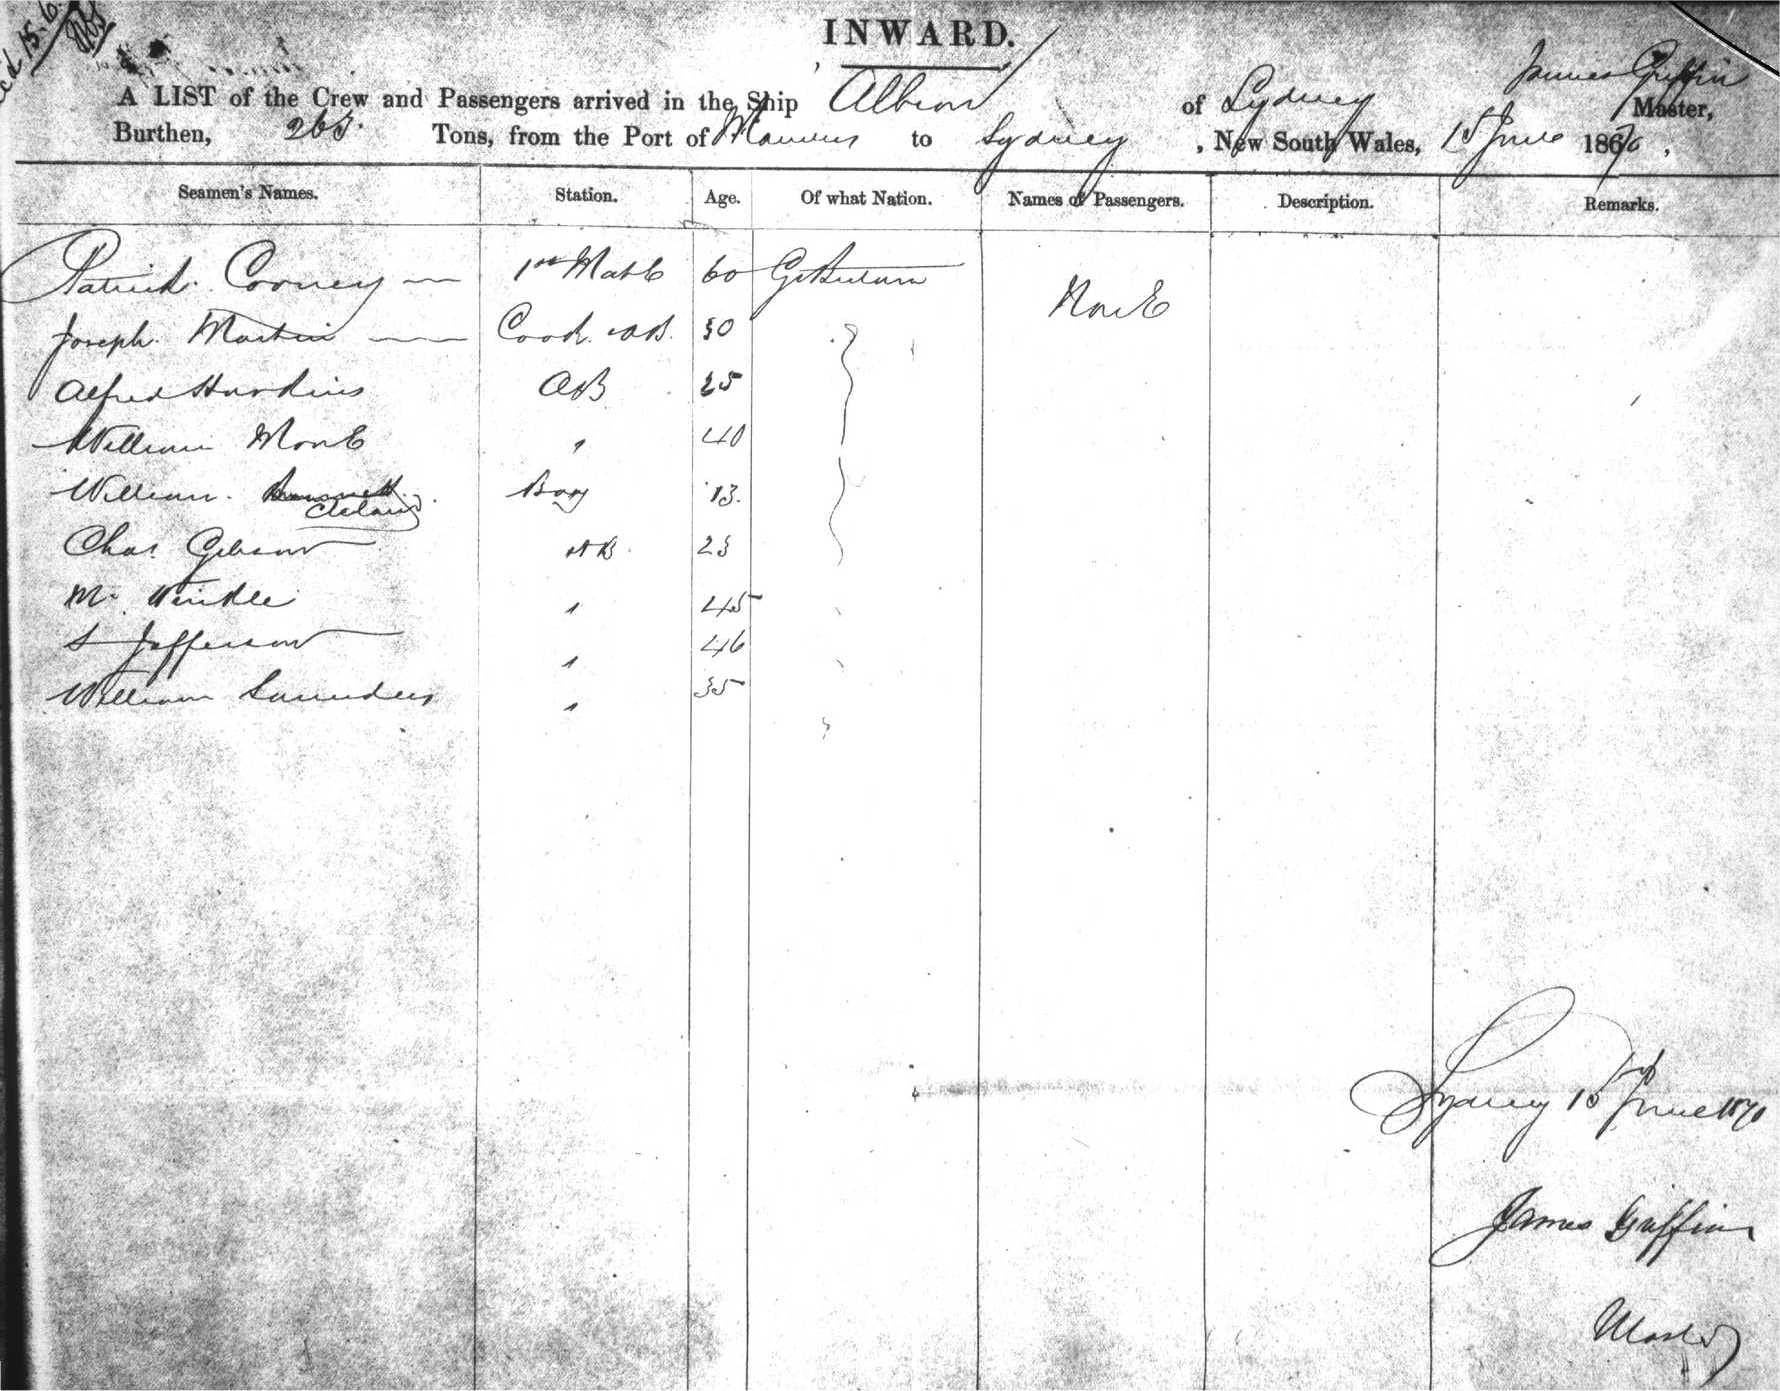 INWARD.
James Griffin
A LIST of the Crew and Passengers arrived in the Ship Albion of Sydney Master,
Burthen, Tons, from the Port of to Sydney, New South Wales, 15 June 1870,
Seamen's Names. Station. Age. Of what Nation. Names of Passengers. Description. Remarks.
Patrick Cooney 1st Mate 60 Gt Britain None
Joseph Martin Cook & AB. 30
Alfred Hawkins AB 25
William 40
William Boy 13
Chas. Gibson AB 23
Mr. " 45
S Jefferson " 46
William Saunders " 35
Sydney 15th June 1870
James Griffin
Master